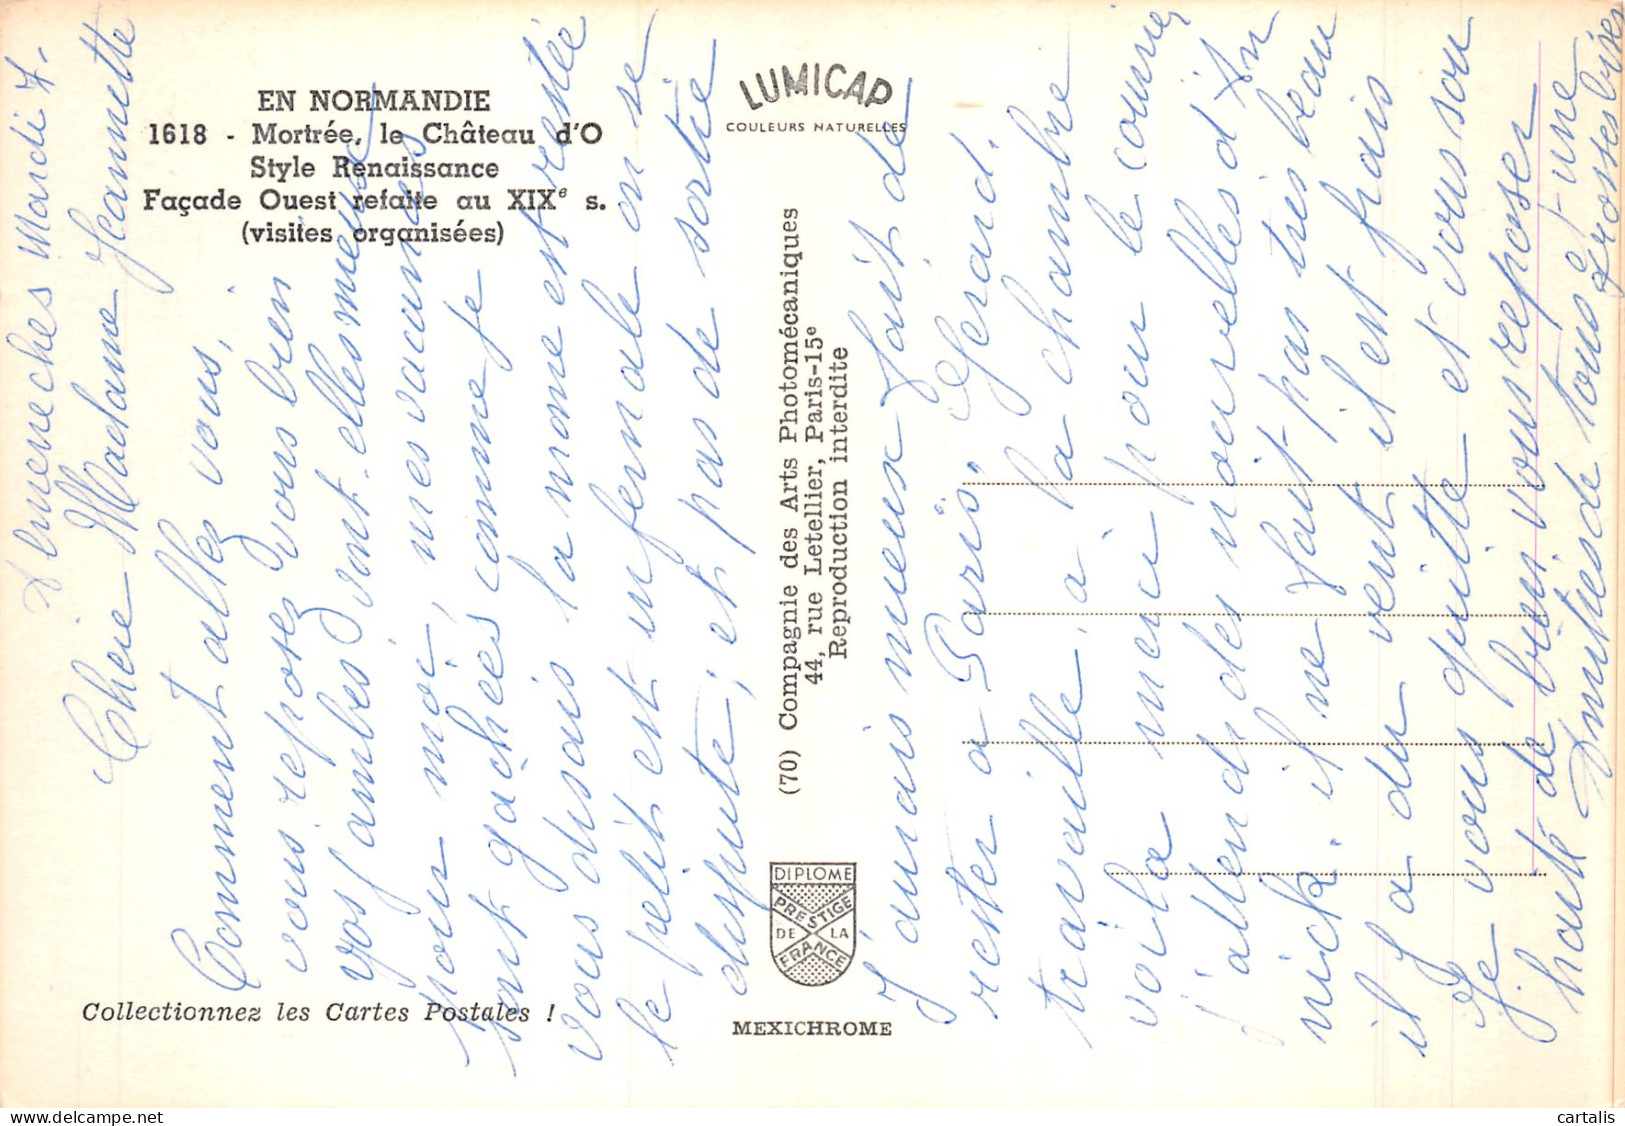 EN NORMANDIE
1618 - Mortrée, le Château d'O
Style Renaissance
Façade Ouest refaite au XIXe s.
(visites organisées)
LUMICAP
COULEURS NATURELLES
(70) Compagnie des Arts Photomécaniques
44, rue Letellier, Paris-15e
Reproduction interdite
DIPLOME
PRESTIGE
DE LA
FRANCE
MEXICHROME
Collectionnez les Cartes Postales !
Almenêches Mardi 7.
Chère Madame Jeannette
Comment allez vous,
vous reposez vous bien
vos jambes vont elles mieux
pour moi, mes vacances
sont gachées comme je
vous disais la mome est restée
le petit est infernale on se
dispute, et pas de sortie
J'aurais mieux fait de
rester a Paris. Gérard.
travaille, a la chambre
voila merci pour le courrier
j'attends des nouvelles d'An
nick. il ne fait pas très beau
il a du vent il est frais
Je vous quitte et vous sou
haite de bien vous reposer
Amitiés de tous et une
grosses bises
cartalis.com